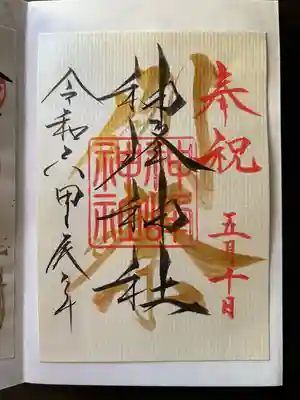 奉祝
五月十日
例祭
神社
令和六甲辰年
神社